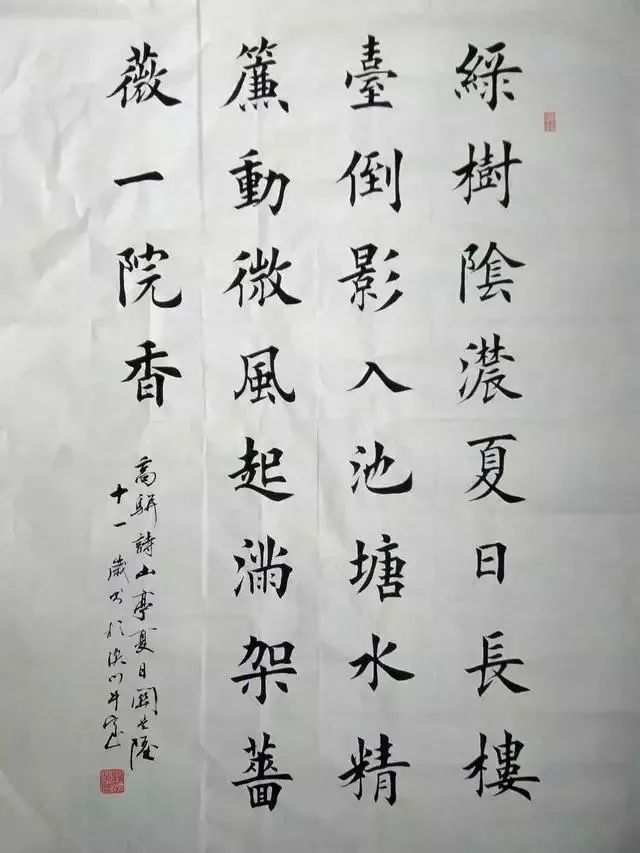 綠樹陰濃夏日長樓
臺倒影入池塘水精
簾動微風起滿架薔
薇一院香
高駢詩山亭夏日關世隆
十一歲書於漢川斗室